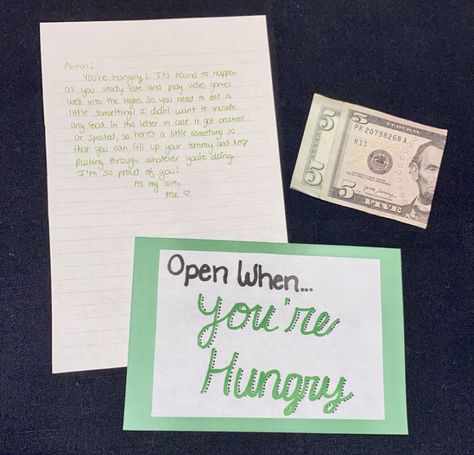 Ahhh!
You're hungry! It's bound to happen
as you study late and play video games
well into the night. So you need to eat a
little something! I didn't want to include
any food in this letter in case it got crushed
or spoiled, so here's a little something so
that you can fill up your tummy and keep
pushing through whatever you're doing.
I'm so proud of you!
All my love,
Me ♡
5
5
FEDERAL
PK20798268A
K11
5
Open When...
You're
Hungry